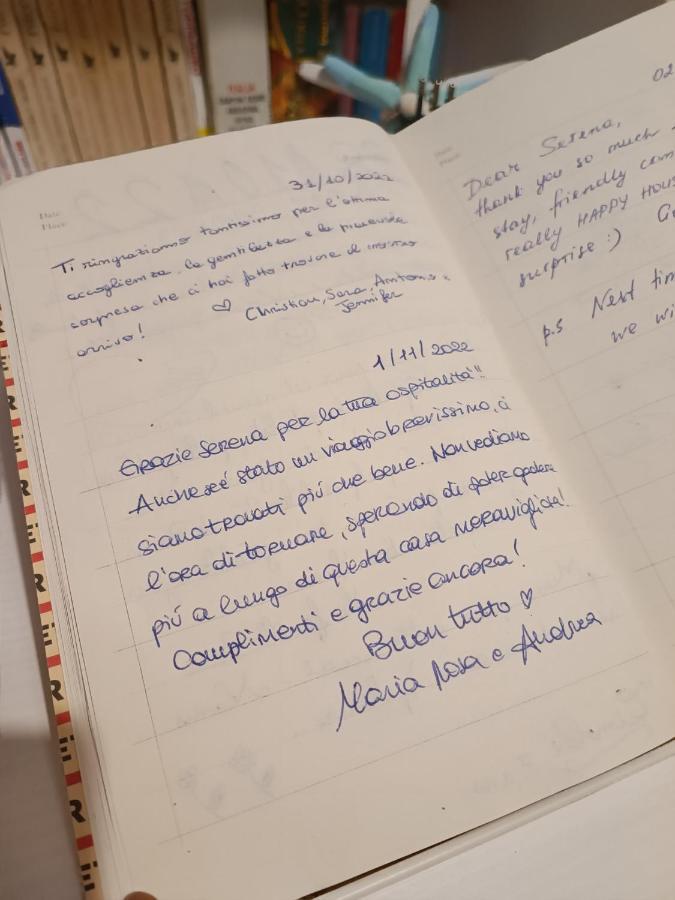 31/10/2022
Ti ringraziamo tantissimo per l'ottima
accoglienza, la gentilezza e la piacevole
sorpresa che ci hai fatto trovare al nostro
arrivo!
♡ Christian, Sara, Antonio e
Jennifer
1/11/2022
Grazie Serena per la tua ospitalità!!
Anche se è stato un viaggio brevissimo, ci
siamo trovati più che bene. Non vediamo
l'ora di tornare, sperando di poter godere
più a lungo di questa casa meravigliosa!
Complimenti e grazie ancora!
Buon tutto ♡
Maria Rosa e Andrea
02
Dear Serena,
thank you so much
stay, friendly
really HAPPY
surprise :)
p.s Next
we